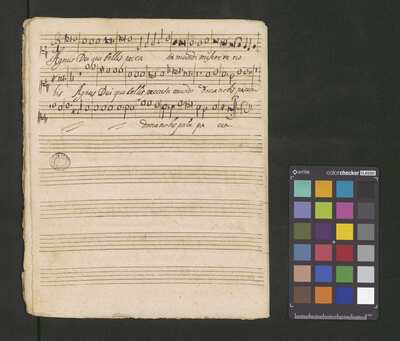 Agnus Dei qui tollis pecca ta mundi misere re no
bis Agnus Dei qui tollis peccata mundi dona nobis pacem
dona nobis pa ce pa cem
x-rite colorchecker CLASSIC